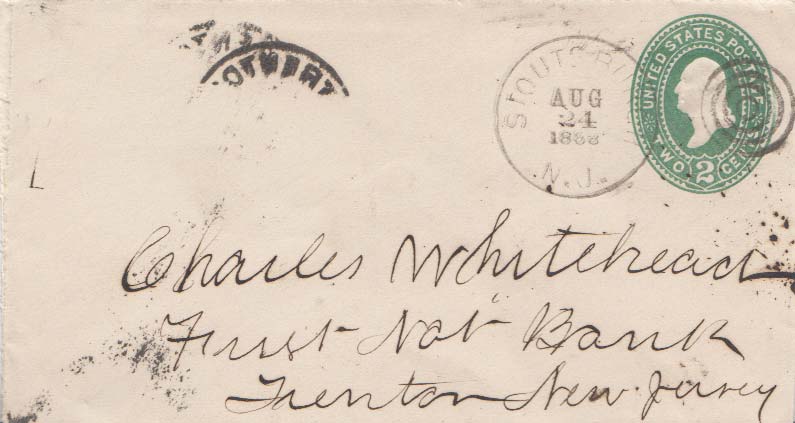 UNITED STATES POSTAGE
TWO 2 CENTS
AUG
24
1888
N.J.
Charles Whitehead
First Nat Bank
Trenton New Jersey